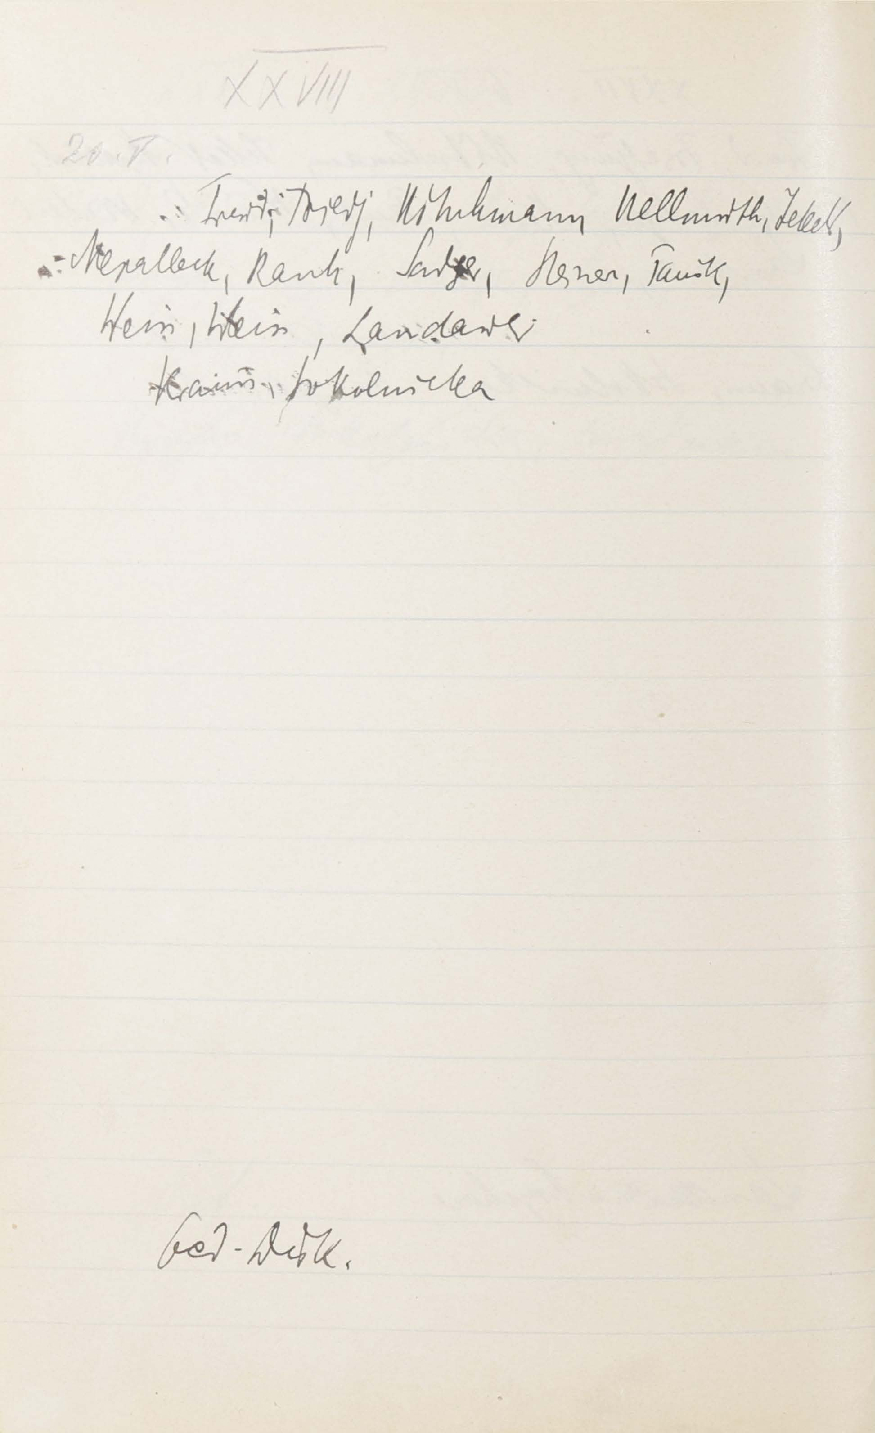 XXVIII
20. V.
Freud, Friedj, Hitschmann, Hellmuth, Jekels,
Nepalleck, Rank, Sadger, Steiner, Tausk,
Weiss, Landauer
Kraus, Sokolnicka
Ged-Disk.